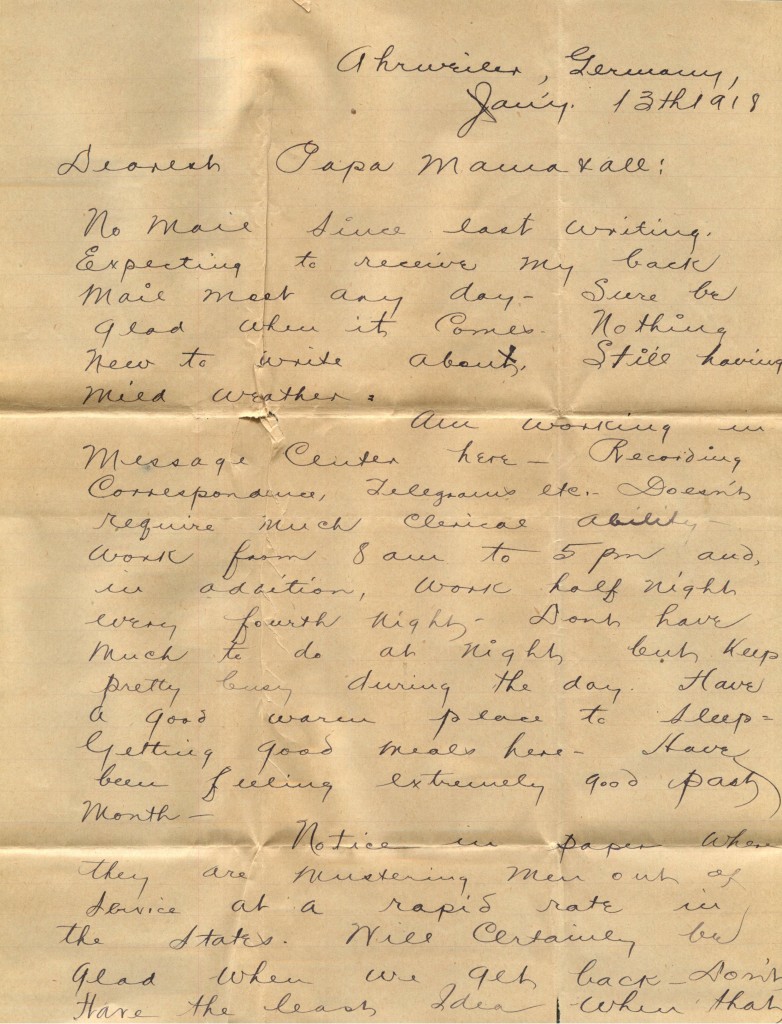 Ahrweiler, Germany,
Jan'y. 13th 1918
Dearest Papa Mama & all:
No Mail since last writing.
Expecting to receive my back
Mail most any day - Sure be
glad when it comes. Nothing
New to write about. Still having
Mild weather.
Am working in
Message Center here - Recording
Correspondence, Telegrams etc. - Doesn't
require much clerical ability -
Work from 8 am to 5 pm and,
in addition, work half night
every fourth night - Dont have
Much to do at night but keep
pretty busy during the day. Have
a good warm place to sleep =
Getting good meals here - Have
been feeling extremely good past
Month -
Notice in paper where
they are mustering men out of
service at a rapid rate in
the States. Will Certainly be
glad when we get back - Don't
Have the least Idea when that